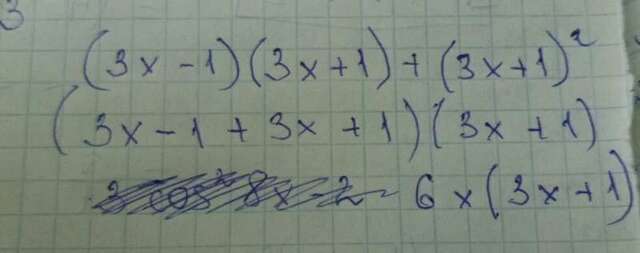 3
(3x-1)(3x+1)+(3x+1)²
(3x-1+3x+1)(3x+1)
6x(3x+1)